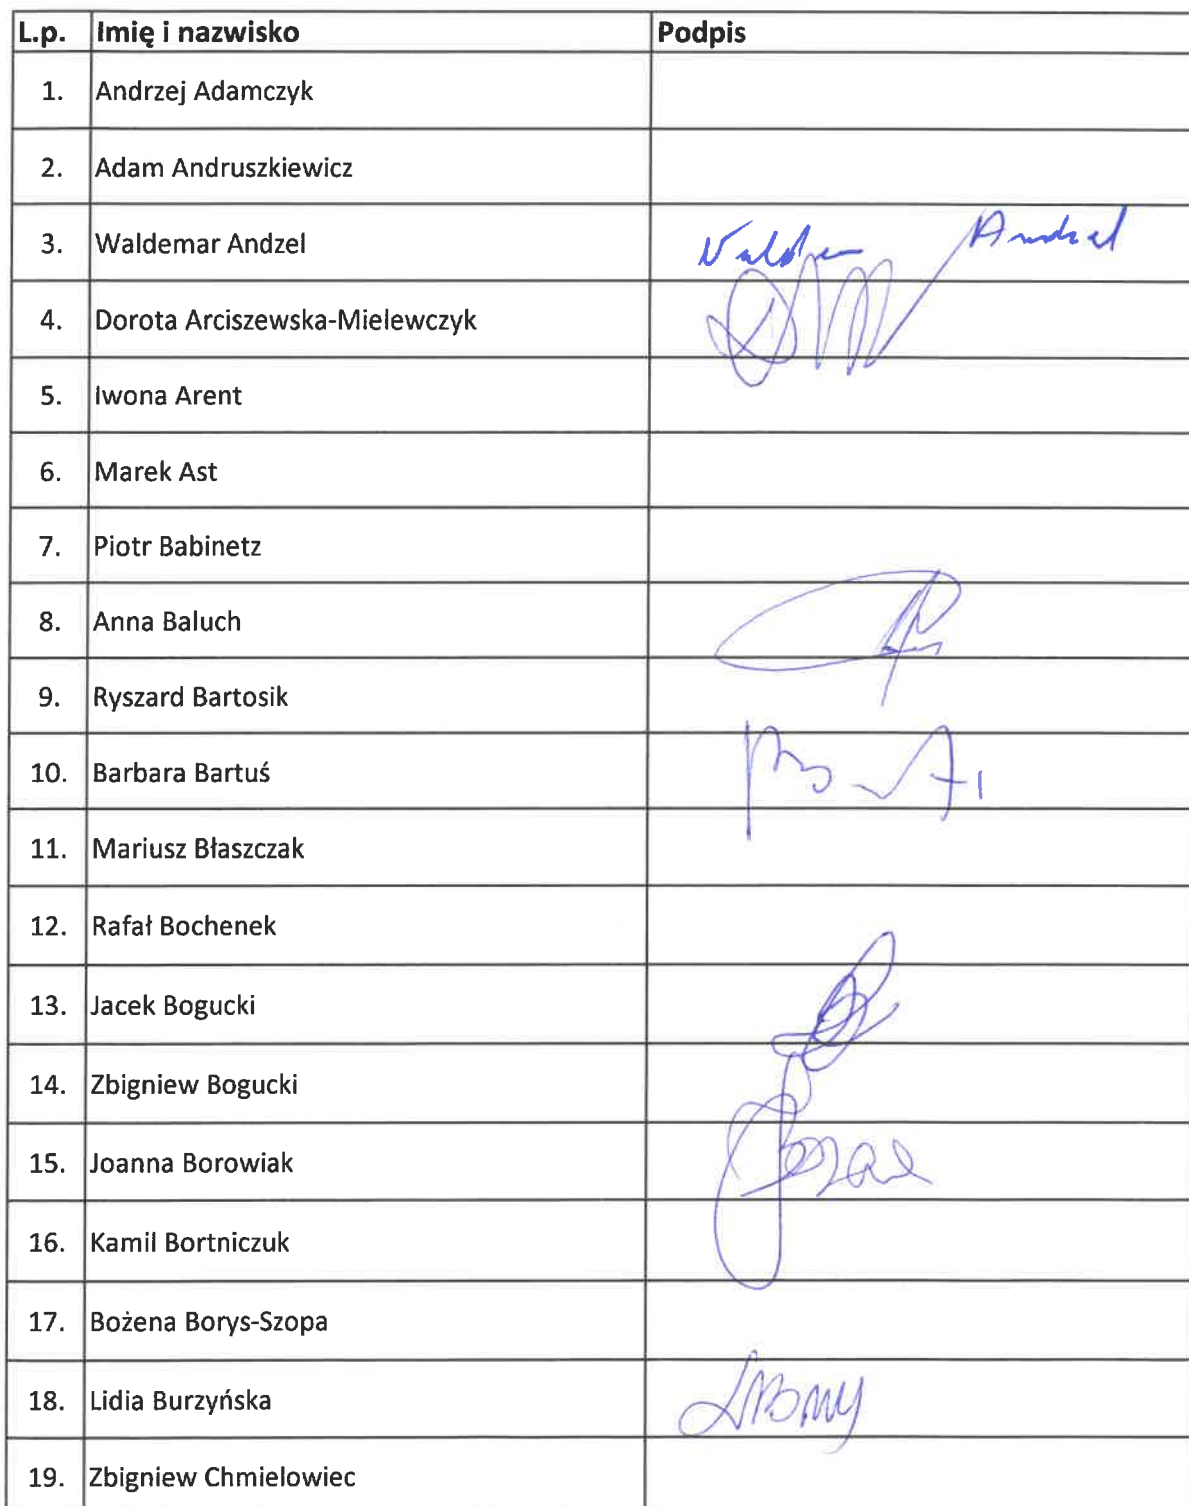 L.p. Imię i nazwisko Podpis
1. Andrzej Adamczyk
2. Adam Andruszkiewicz
3. Waldemar Andzel Andzel
4. Dorota Arciszewska-Mielewczyk
5. Iwona Arent
6. Marek Ast
7. Piotr Babinetz
8. Anna Baluch
9. Ryszard Bartosik
10. Barbara Bartuś
11. Mariusz Błaszczak
12. Rafał Bochenek
13. Jacek Bogucki
14. Zbigniew Bogucki
15. Joanna Borowiak
16. Kamil Bortniczuk
17. Bożena Borys-Szopa
18. Lidia Burzyńska
19. Zbigniew Chmielowiec